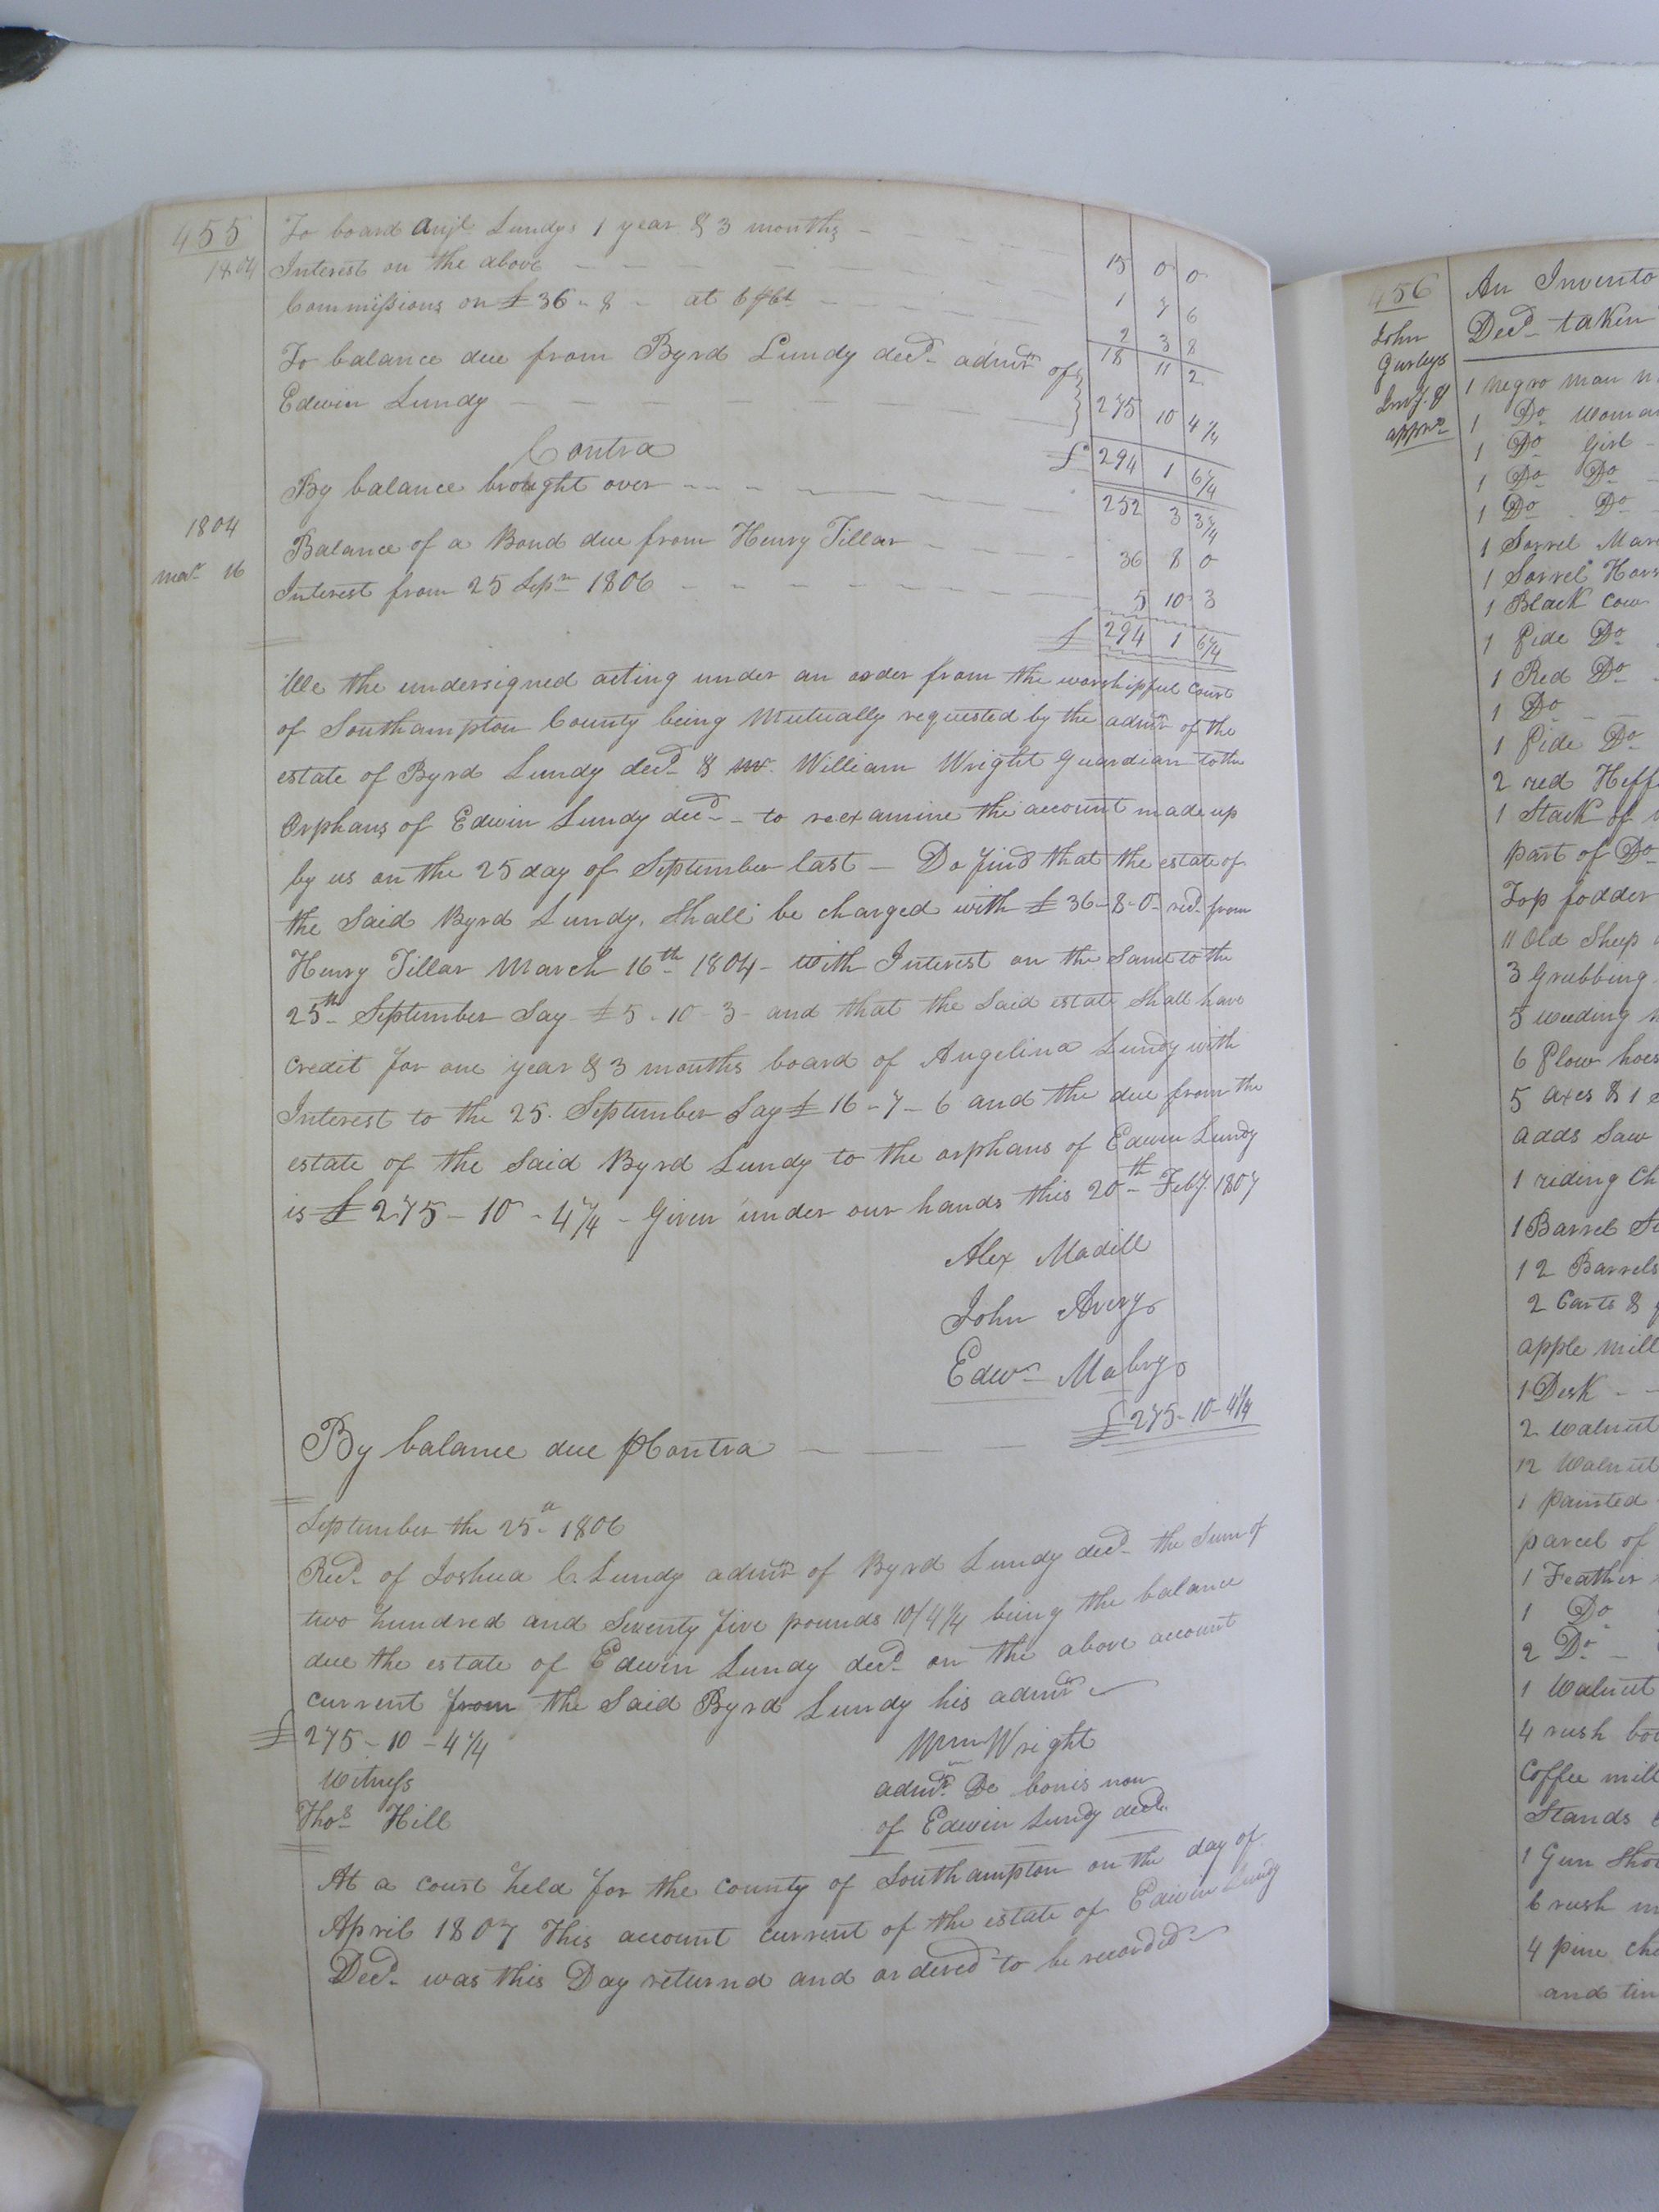 455
To board Anjl. Lundys 1 year & 3 months 15 0 0
1804 Interest on the above 1 7 6
Commissions on £36-8- at 6 pCt 2 3 8
18 11 2
To balance due from Byrd Lundy decd. admr of
Edwin Lundy 275 10 4 1/4
£ 294 1 6 1/4
Contra
By balance brought over 252 3 3 1/4
1804
Mar. 16 Balance of a Bond due from Henry Tillar 36 8 0
Interest from 25 Sepr 1806 5 10 3
£ 294 1 6 1/4
We the undersigned acting under an order from the worshipful Court
of Southampton County being Mutually requested by the admr of the
estate of Byrd Lundy decd. & mr. William Wright Guardian to the
Orphans of Edwin Lundy decd. - to reexamine the account made up
by us on the 25 day of September last - Do find that the estate of
the Said Byrd Lundy, Shall be charged with £36-8-0 recd. from
Henry Tillar March 16th 1804 - with Interest on the Same to the
25th September Say £5-10-3- and that the Said estate Shall have
Credit for one year & 3 months board of Angelina Lundy with
Interest to the 25. September Say £16-7-6 and the due from the
estate of the Said Byrd Lundy to the orphans of Edwin Lundy
is £275-10-4 1/4 - Given under our hands this 20th Feby. 1807
Alex Madill
John Avery
Edwn Mabry
By balance due pContra £275-10-4 1/4
September the 25th 1806
Recd. of Joshua C. Lundy admr of Byrd Lundy decd. the Sum of
two hundred and Seventy five pounds 10/4 1/4 being the balance
due the estate of Edwin Lundy decd. on the above account
current from the Said Byrd Lundy his admr
£275-10-4 1/4 Wm Wright
Witness admr. De bonis non
Thos Hill of Edwin Lundy decd.
At a court held for the county of Southampton on the day of
April 1807 This account current of the estate of Edwin Lundy
Decd. was this Day returnd and ordered to be recorded
456
John
Gurleys
Invy. &
apprt
An Invento
Decd taken
1 Negro man
1 Do Woma
1 Do Girl -
1 Do Do
1 Do Do
1 Sorrel Mar
1 Sorrel Hors
1 Black Cow
1 Pide Do
1 Red Do
1 Do
1 Pide Do
2 red Heff
1 Stack of
part of Do
Top fodder
11 Old Sheep
3 Grubbing
5 weeding
6 Plow hoes
5 axes & 1
adds Saw
1 riding Ch
1 Barrel
12 Barrels
2 Carts &
apple mill
1 Desk - -
2 Walnut
12 Walnut
1 painted
parcel of
1 Feather
1 Do
2 Do -
1 Walnut
4 rush bo
Coffee mill
Stands
1 Gun Sho
6 rush
4 pine ch
and tin